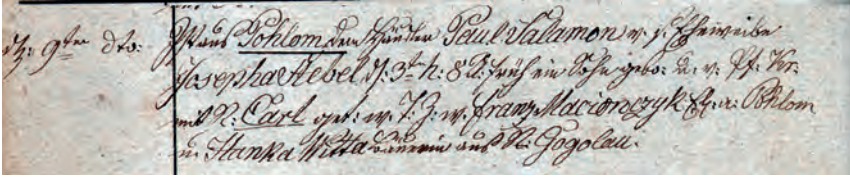 dz: 9ten dto: Ist aus Pohlom dem Häusler Paul Salamon v. s. Eheweibe
Josepha Hebel d: 3t h: 8 U: früh ein Sohn gebo: u. v. Pf. Kr:
mit N: Carl get: w. T: Z: w. Franz Macionczyk Ez: a: Pohlom
u. Hanka Witta Bäuerin aus N: Gogolau.